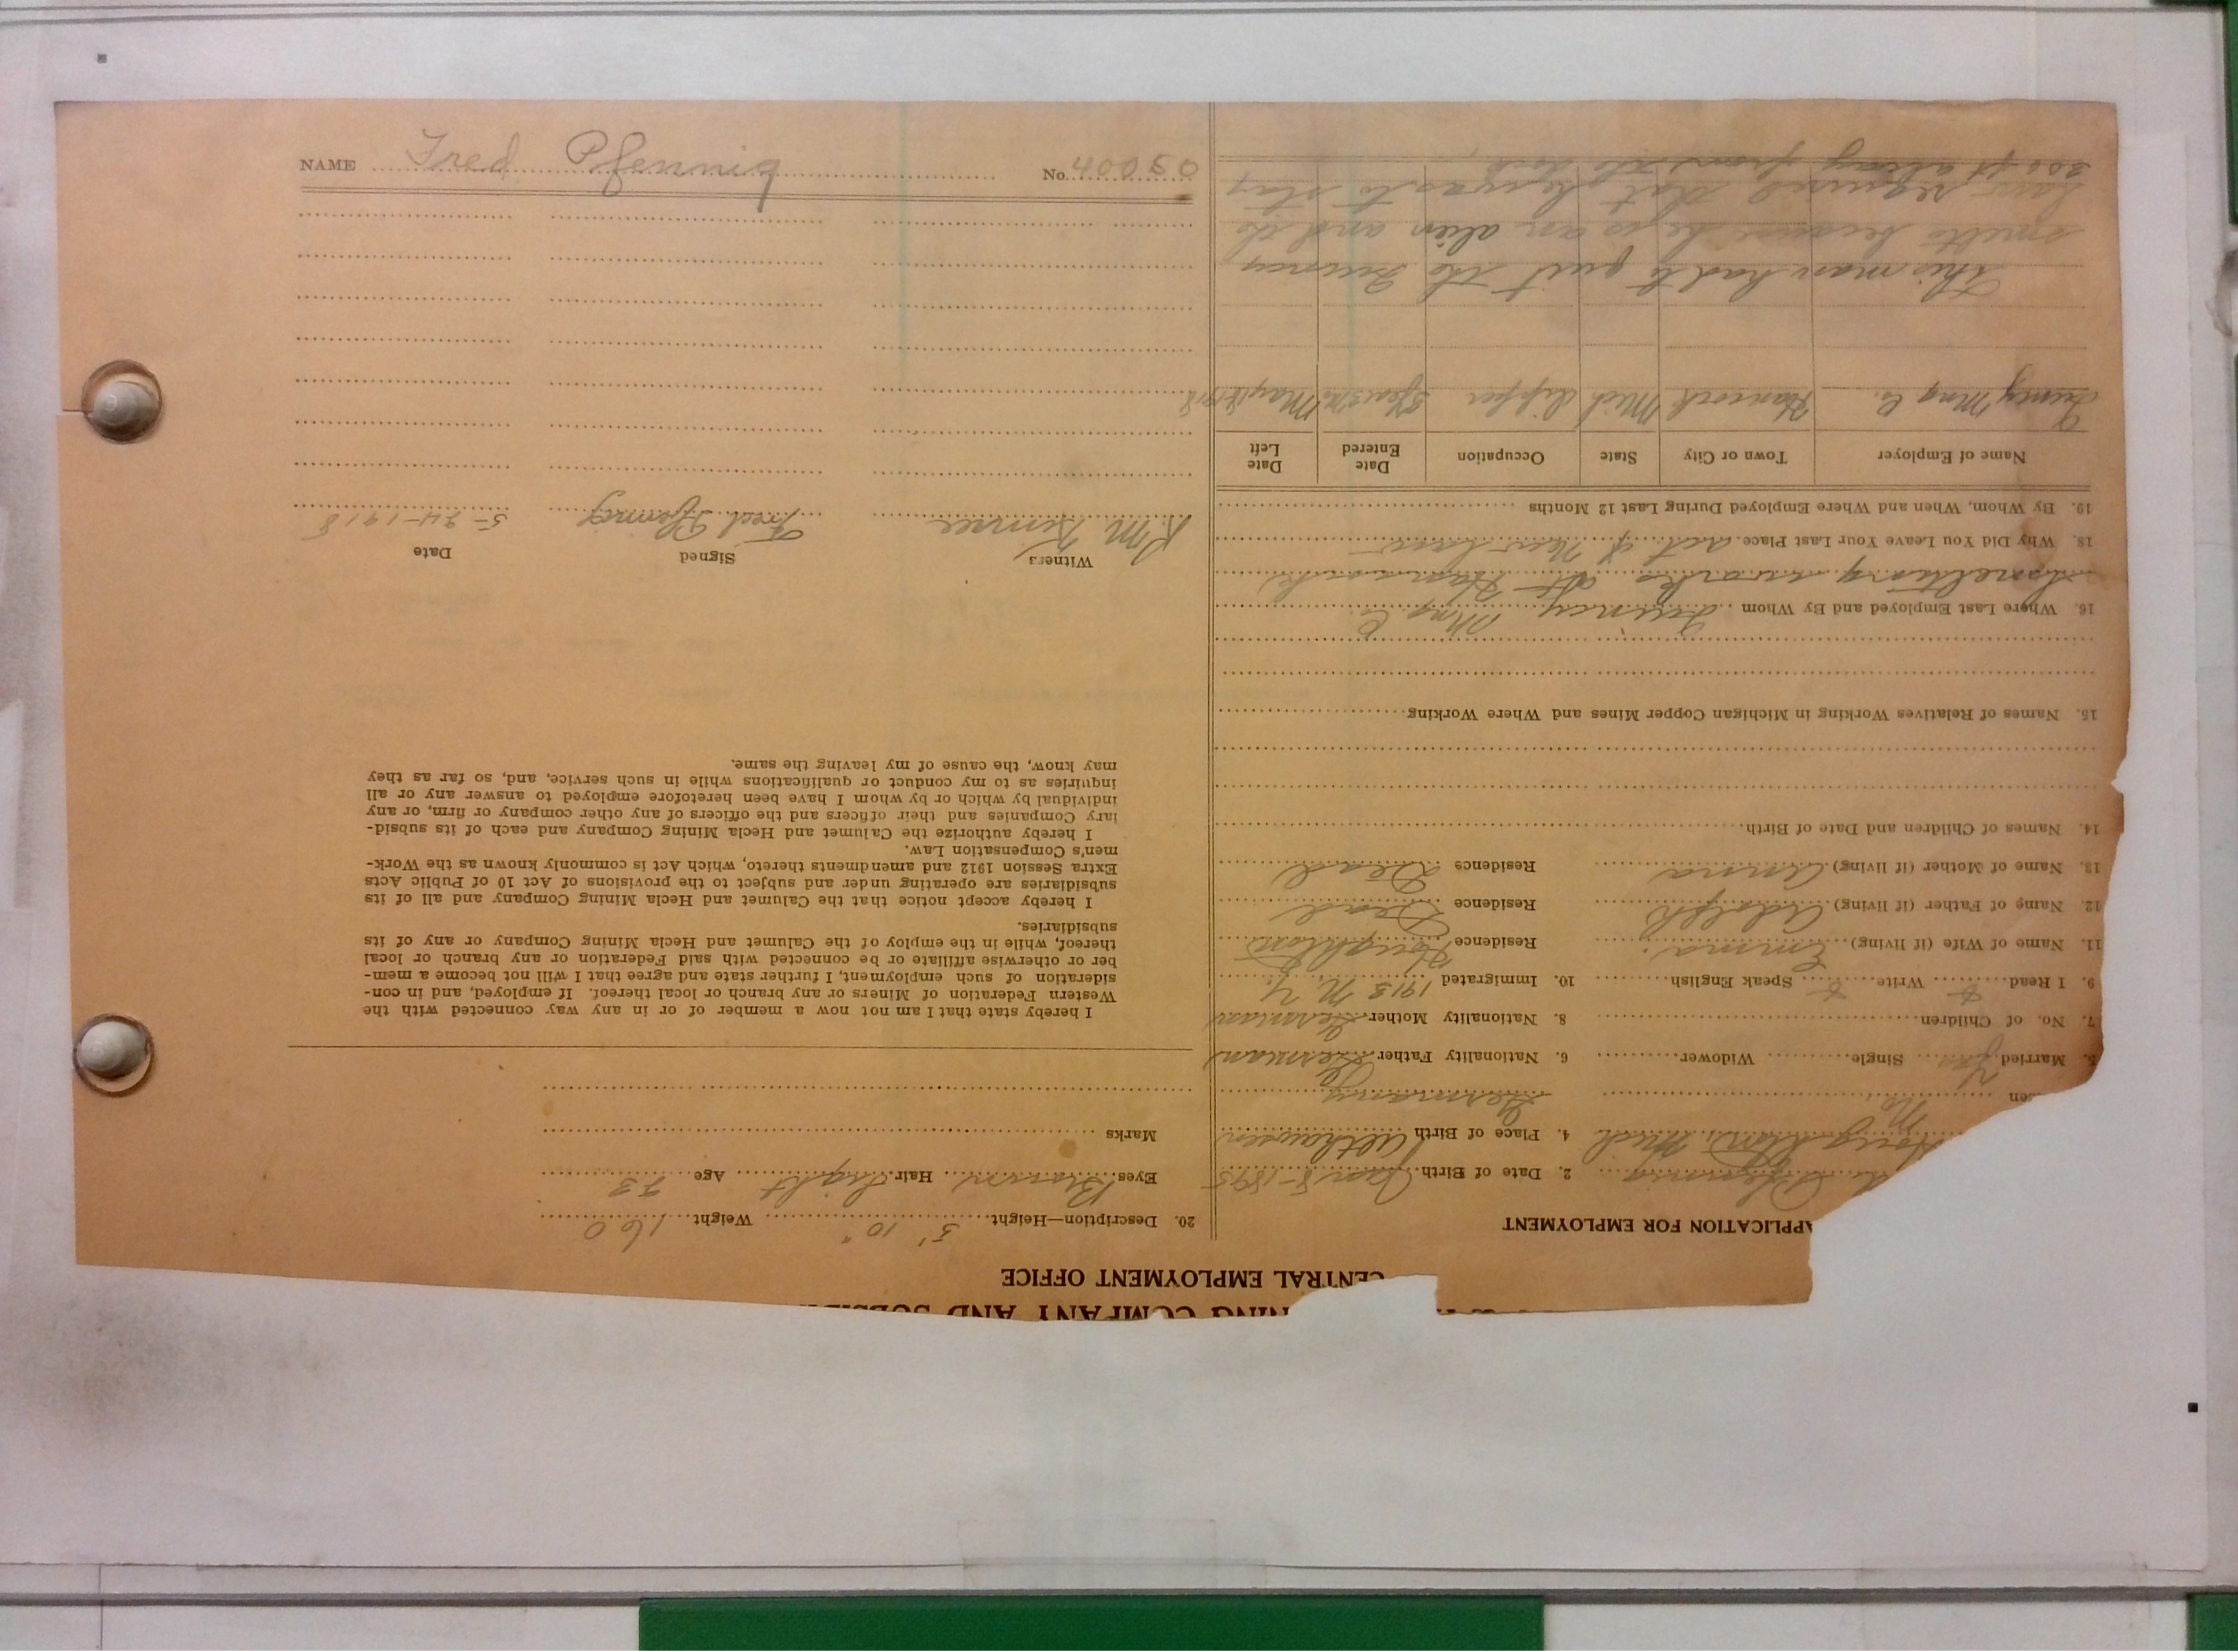 NAME Fred Pfennig No. 40050
MINING COMPANY AND
CENTRAL EMPLOYMENT OFFICE
APPLICATION FOR EMPLOYMENT
Pfennig 2. Date of Birth Jan 8-1895
Houghton, Mich 4. Place of Birth Althausen
No Germany
5. Married Yes Single Widower 6. Nationality Father German
7. No. of Children 8. Nationality Mother German
9. I Read Write Speak English 10. Immigrated 1913 N.Y.
11. Name of Wife (if living) Emma Residence Houghton
12. Name of Father (if living) Adolph Residence Dead
13. Name of Mother (if living) Anna Residence Dead
14. Names of Children and Date of Birth
15. Names of Relatives Working in Michigan Copper Mines and Where Working
16. Where Last Employed and By Whom Quincy Mng Co
Smelting works at Hancock
18. Why Did You Leave Your Last Place act of New Law
19. By Whom, When and Where Employed During Last 12 Months
Name of Employer Town or City State Occupation Date Entered Date Left
Quincy Mng Co. Hancock Mich Dipper May 18 1918
This man had to quit the Quincy
smelter because he is an alien and the
law required that he was to stay
300 ft away from the dock.
20. Description—Height 5' 10" Weight 160
Eyes Brown Hair Light Age 23
Marks
I hereby state that I am not now a member of or in any way connected with the
Western Federation of Miners or any branch or local thereof. If employed, and in con-
sideration of such employment, I further state and agree that I will not become a mem-
ber or otherwise affiliate or be connected with said Federation or any branch or local
thereof, while in the employ of the Calumet and Hecla Mining Company or any of its
subsidiaries.
I hereby accept notice that the Calumet and Hecla Mining Company and all of its
subsidiaries are operating under and subject to the provisions of Act 10 of Public Acts
Extra Session 1912 and amendments thereto, which Act is commonly known as the Work-
men's Compensation Law.
I hereby authorize the Calumet and Hecla Mining Company and each of its subsid-
iary Companies and their officers and the officers of any other company or firm, or any
individual by which or by whom I have been heretofore employed to answer any or all
inquiries as to my conduct or qualifications while in such service, and, so far as they
may know, the cause of my leaving the same.
Witness Signed Date
Fred Pfennig 5-24-1918